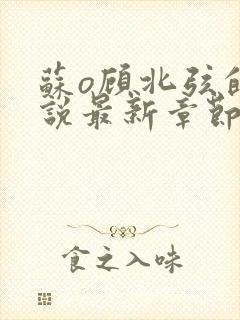 蘇o顾北弦的
説最新章節
食之入味